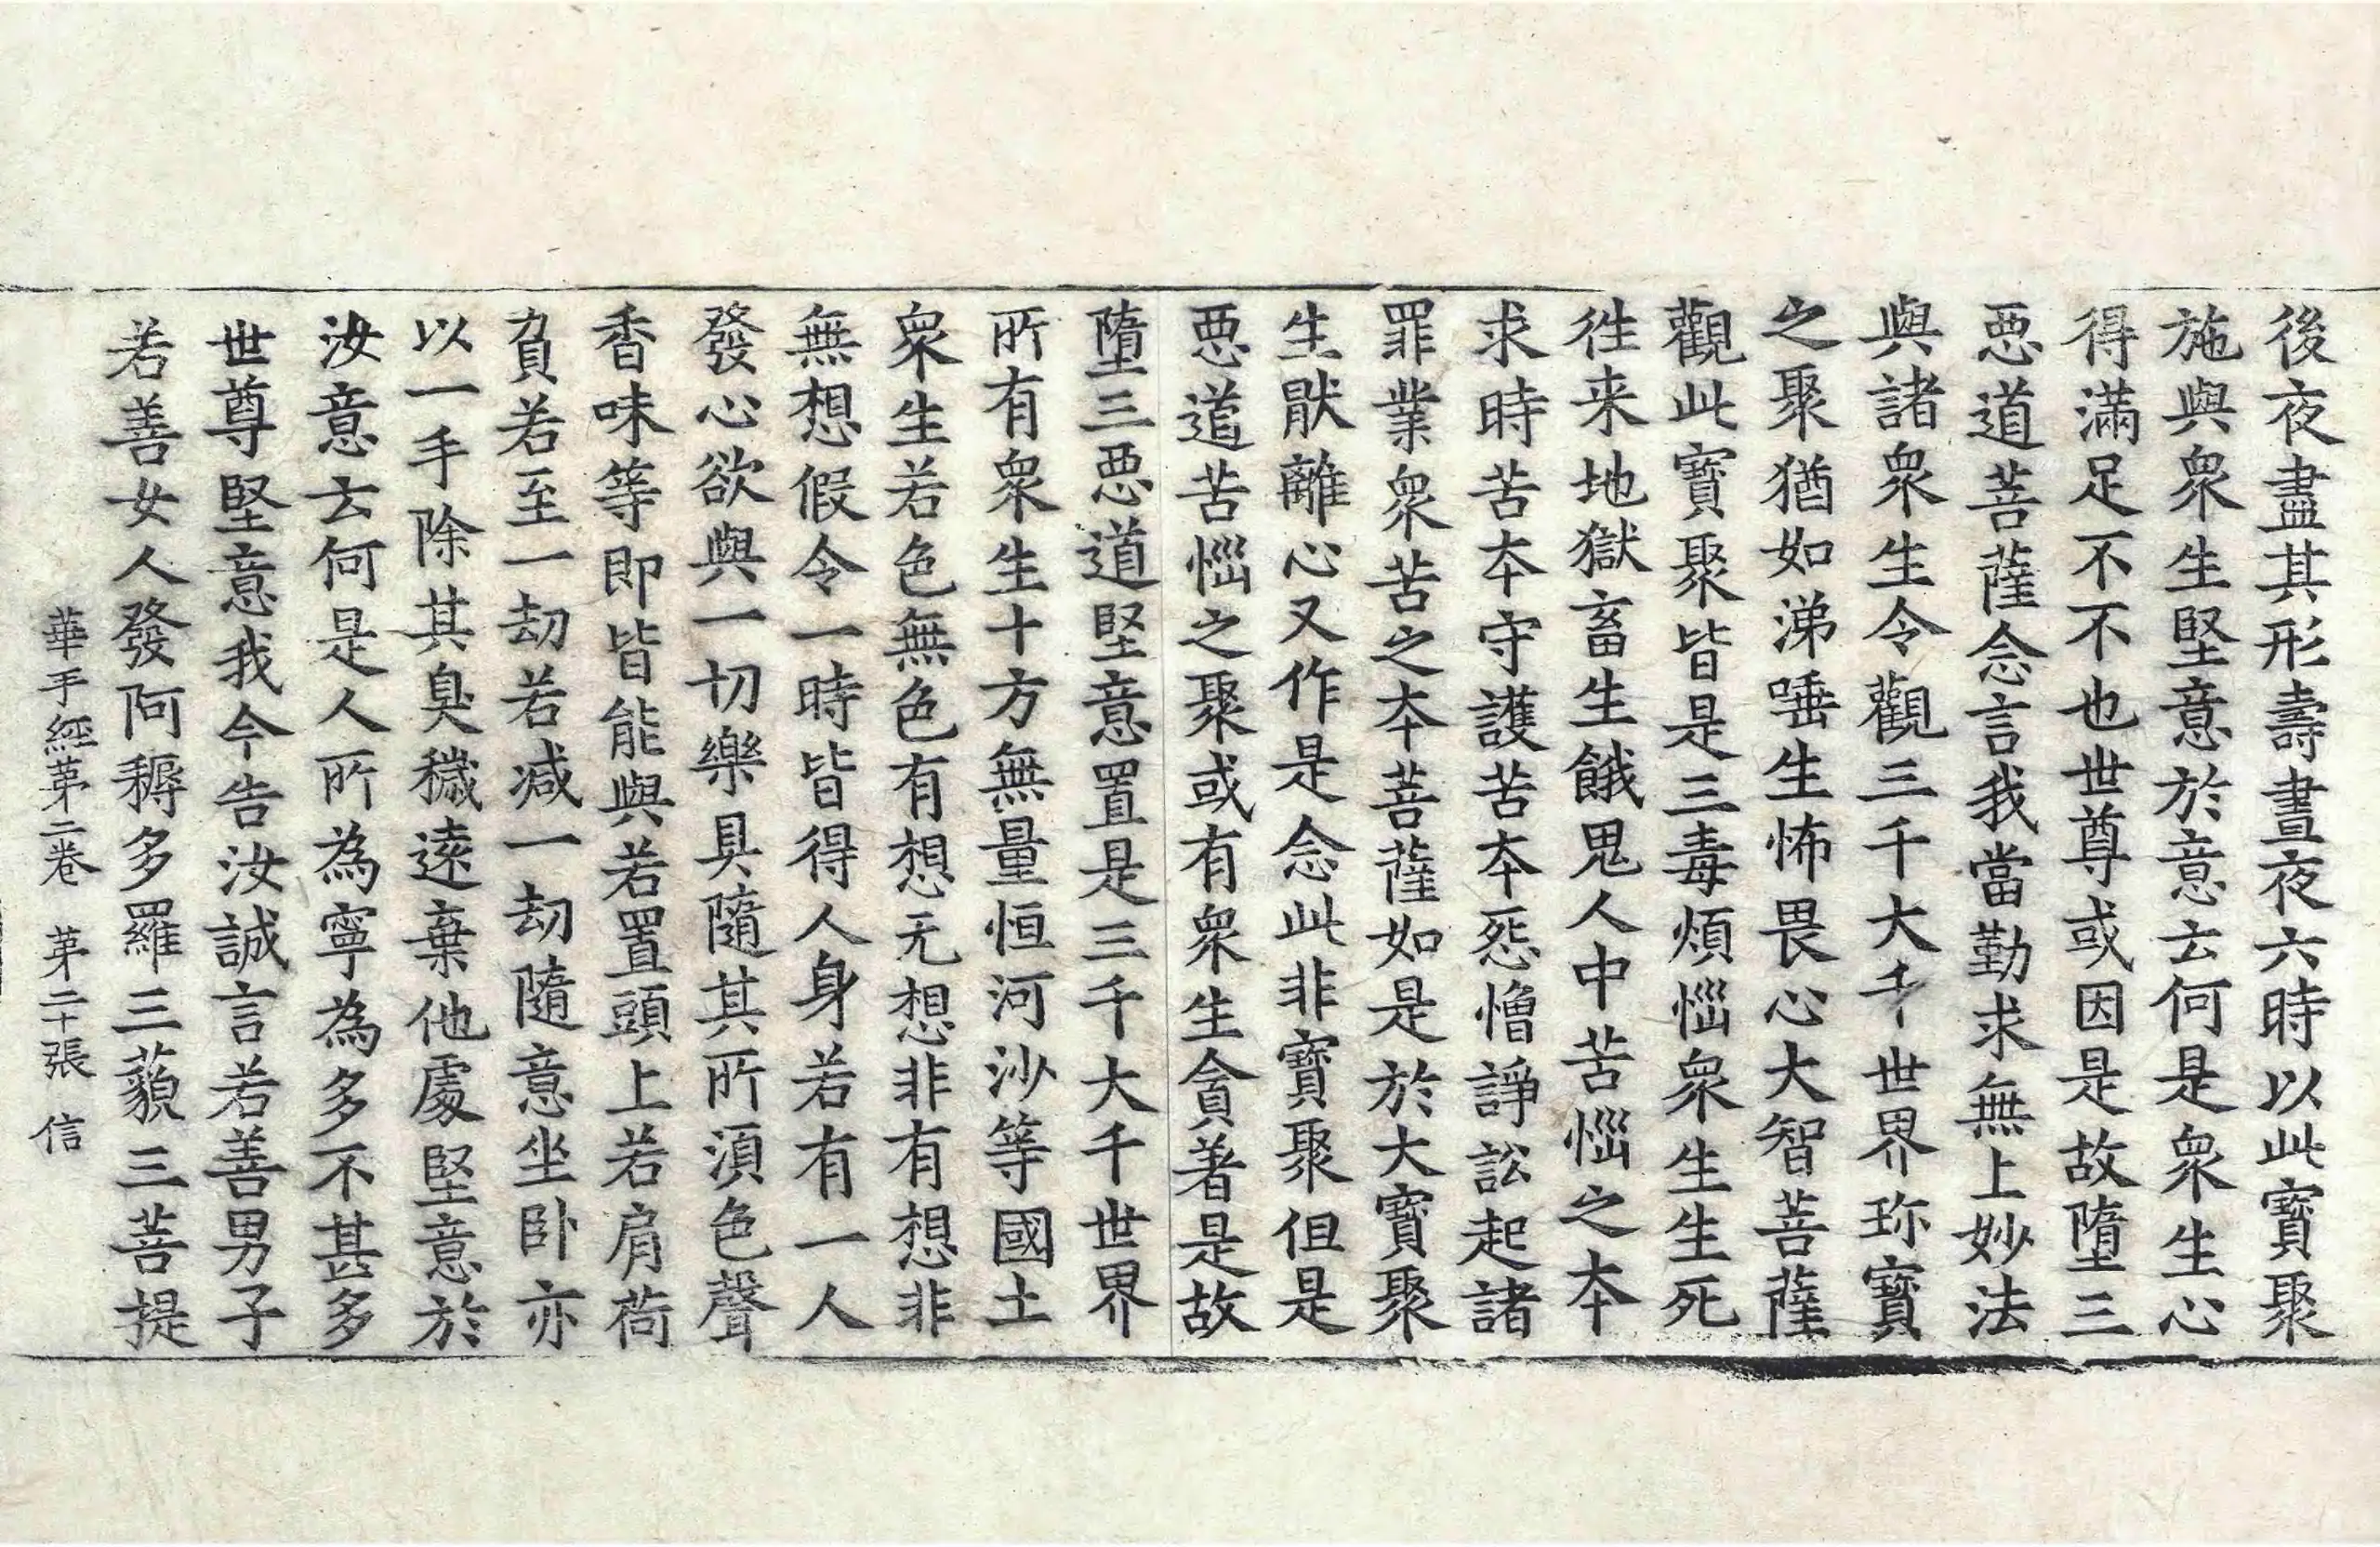 後夜盡其形壽晝夜六時以此寶聚
施與衆生堅意於意云何是衆生心
得滿足不不也世尊或因是故墮三
惡道菩薩念言我當勤求無上妙法
與諸衆生令觀三千大千世界珎寶
之聚猶如涕唾生怖畏心大智菩薩
觀此寶聚皆是三毒煩惱衆生生死
徃来地獄畜生餓鬼人中苦惱之本
求時苦本守護苦本怨憎諍訟起諸
罪業衆苦之本菩薩如是於大寶聚
生猒離心又作是念此非寶聚但是
惡道苦惱之聚或有衆生貪著是故
墮三惡道堅意置是三千大千世界
所有衆生十方無量恒河沙等國土
衆生若色無色有想无想非有想非
無想假令一時皆得人身若有一人
發心欲與一切樂具隨其所湏色聲
香味等即皆能與若置頭上若肩荷
負若至一劫若减一劫隨意坐卧亦
以一手除其臭穢遠棄他處堅意於
汝意云何是人所為寧為多不甚多
世尊堅意我今告汝誠言若善男子
若善女人發阿耨多羅三藐三菩提
華手經苐二卷　苐二十張　信